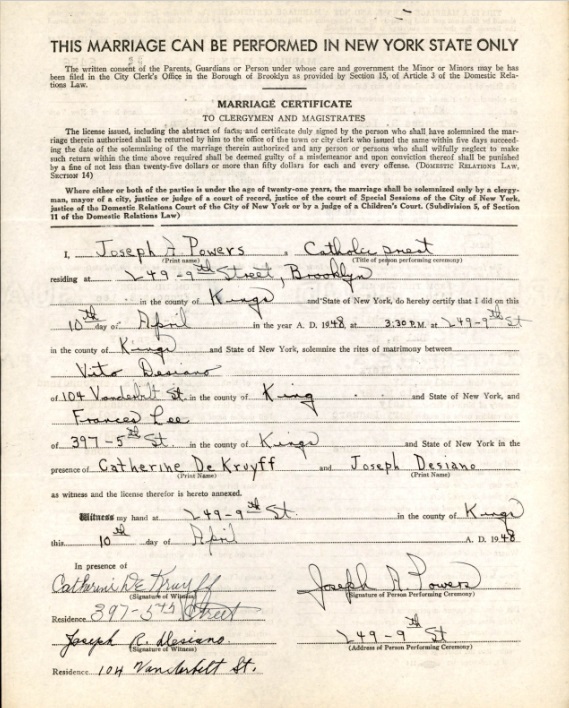 THIS MARRIAGE CAN BE PERFORMED IN NEW YORK STATE ONLY
The written consent of the Parents, Guardians or Person under whose care and government the Minor or Minors may be has
been filed in the City Clerk's Office in the Borough of Brooklyn as provided by Section 15, of Article 3 of the Domestic Rela-
tions Law.
MARRIAGE CERTIFICATE
TO CLERGYMEN AND MAGISTRATES
The license issued, including the abstract of facts; and certificate duly signed by the person who shall have solemnized the mar-
riage therein authorized shall be returned by him to the office of the town or city clerk who issued the same within five days succeed-
ing the date of the solemnizing of the marriage therein authorized and any person or persons who shall wilfully neglect to make
such return within the time above required shall be deemed guilty of a misdemeanor and upon conviction thereof shall be punished
by a fine of not less than twenty-five dollars or more than fifty dollars for each and every offense. (DOMESTIC RELATIONS LAW,
SECTION 14)
Where either or both of the parties is under the age of twenty-one years, the marriage shall be solemnized only by a clergy-
man, mayor of a city, justice or judge of a court of record, justice of the court of Special Sessions of the City of New York,
justice of the Domestic Relations Court of the City of New York or by a judge of a Children's Court. (Subdivision 5, of Section
11 of the Domestic Relations Law)
I, Joseph A Powers a Catholic priest
(Print name) (Title of person performing ceremony)
residing at 249-9th Street, Brooklyn
in the county of Kings and State of New York, do hereby certify that I did on this
10th day of April in the year A. D. 1948 at 3:30 P.M. at 249-9th St
in the county of Kings and State of New York, solemnize the rites of matrimony between
Vito Desiano
of 104 Vanderbilt St. in the county of King and State of New York, and
Frances Lee
of 397-5th St. in the county of Kings and State of New York in the
presence of Catherine De Kruyff and Joseph Desiano
(Print Name) (Print Name)
as witness and the license therefor is hereto annexed.
Witness my hand at 249-9th St. in the county of Kings
this 10th day of April A. D. 1948
In presence of
Catherine De Kruyff Joseph A. Powers
(Signature of Witness) (Signature of Person Performing Ceremony)
Residence 397-5th Street
Joseph R. Desiano. 249-9th St
(Signature of Witness) (Address of Person Performing Ceremony)
Residence 104 Vanderbilt St.